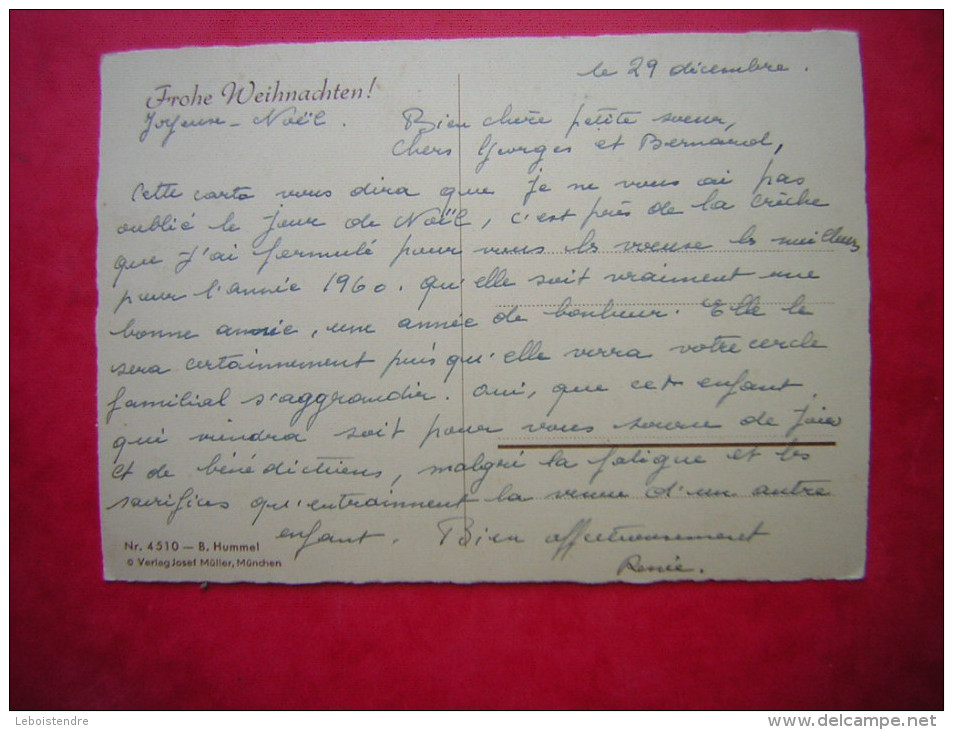 le 29 décembre.
Frohe Weihnachten!
Joyeuse - Noël. Bien chère petite sœur,
chers Georges et Bernard,
Cette carte vous dira que je ne vous ai pas
oublié le jour de Noël, c'est près de la crèche
que j'ai formulé pour vous les voeuse les meilleurs
pour l'année 1960. qu'elle soit vraiment une
bonne année, une année de bonheur. Elle le
sera certainnement puis qu'elle verra votre cercle
familial s'aggrandir. oui, que cet enfant
qui viendra soit pour vous source de joie
et de bénédictions, malgré la fatigue et les
sacrifices qu'entrainnent la venue d'un autre
enfant. Bien affectueusement
Renée.
Nr. 4510 — B. Hummel
© Verlag Josef Müller, München
Leboistendre
www.delcampe.net